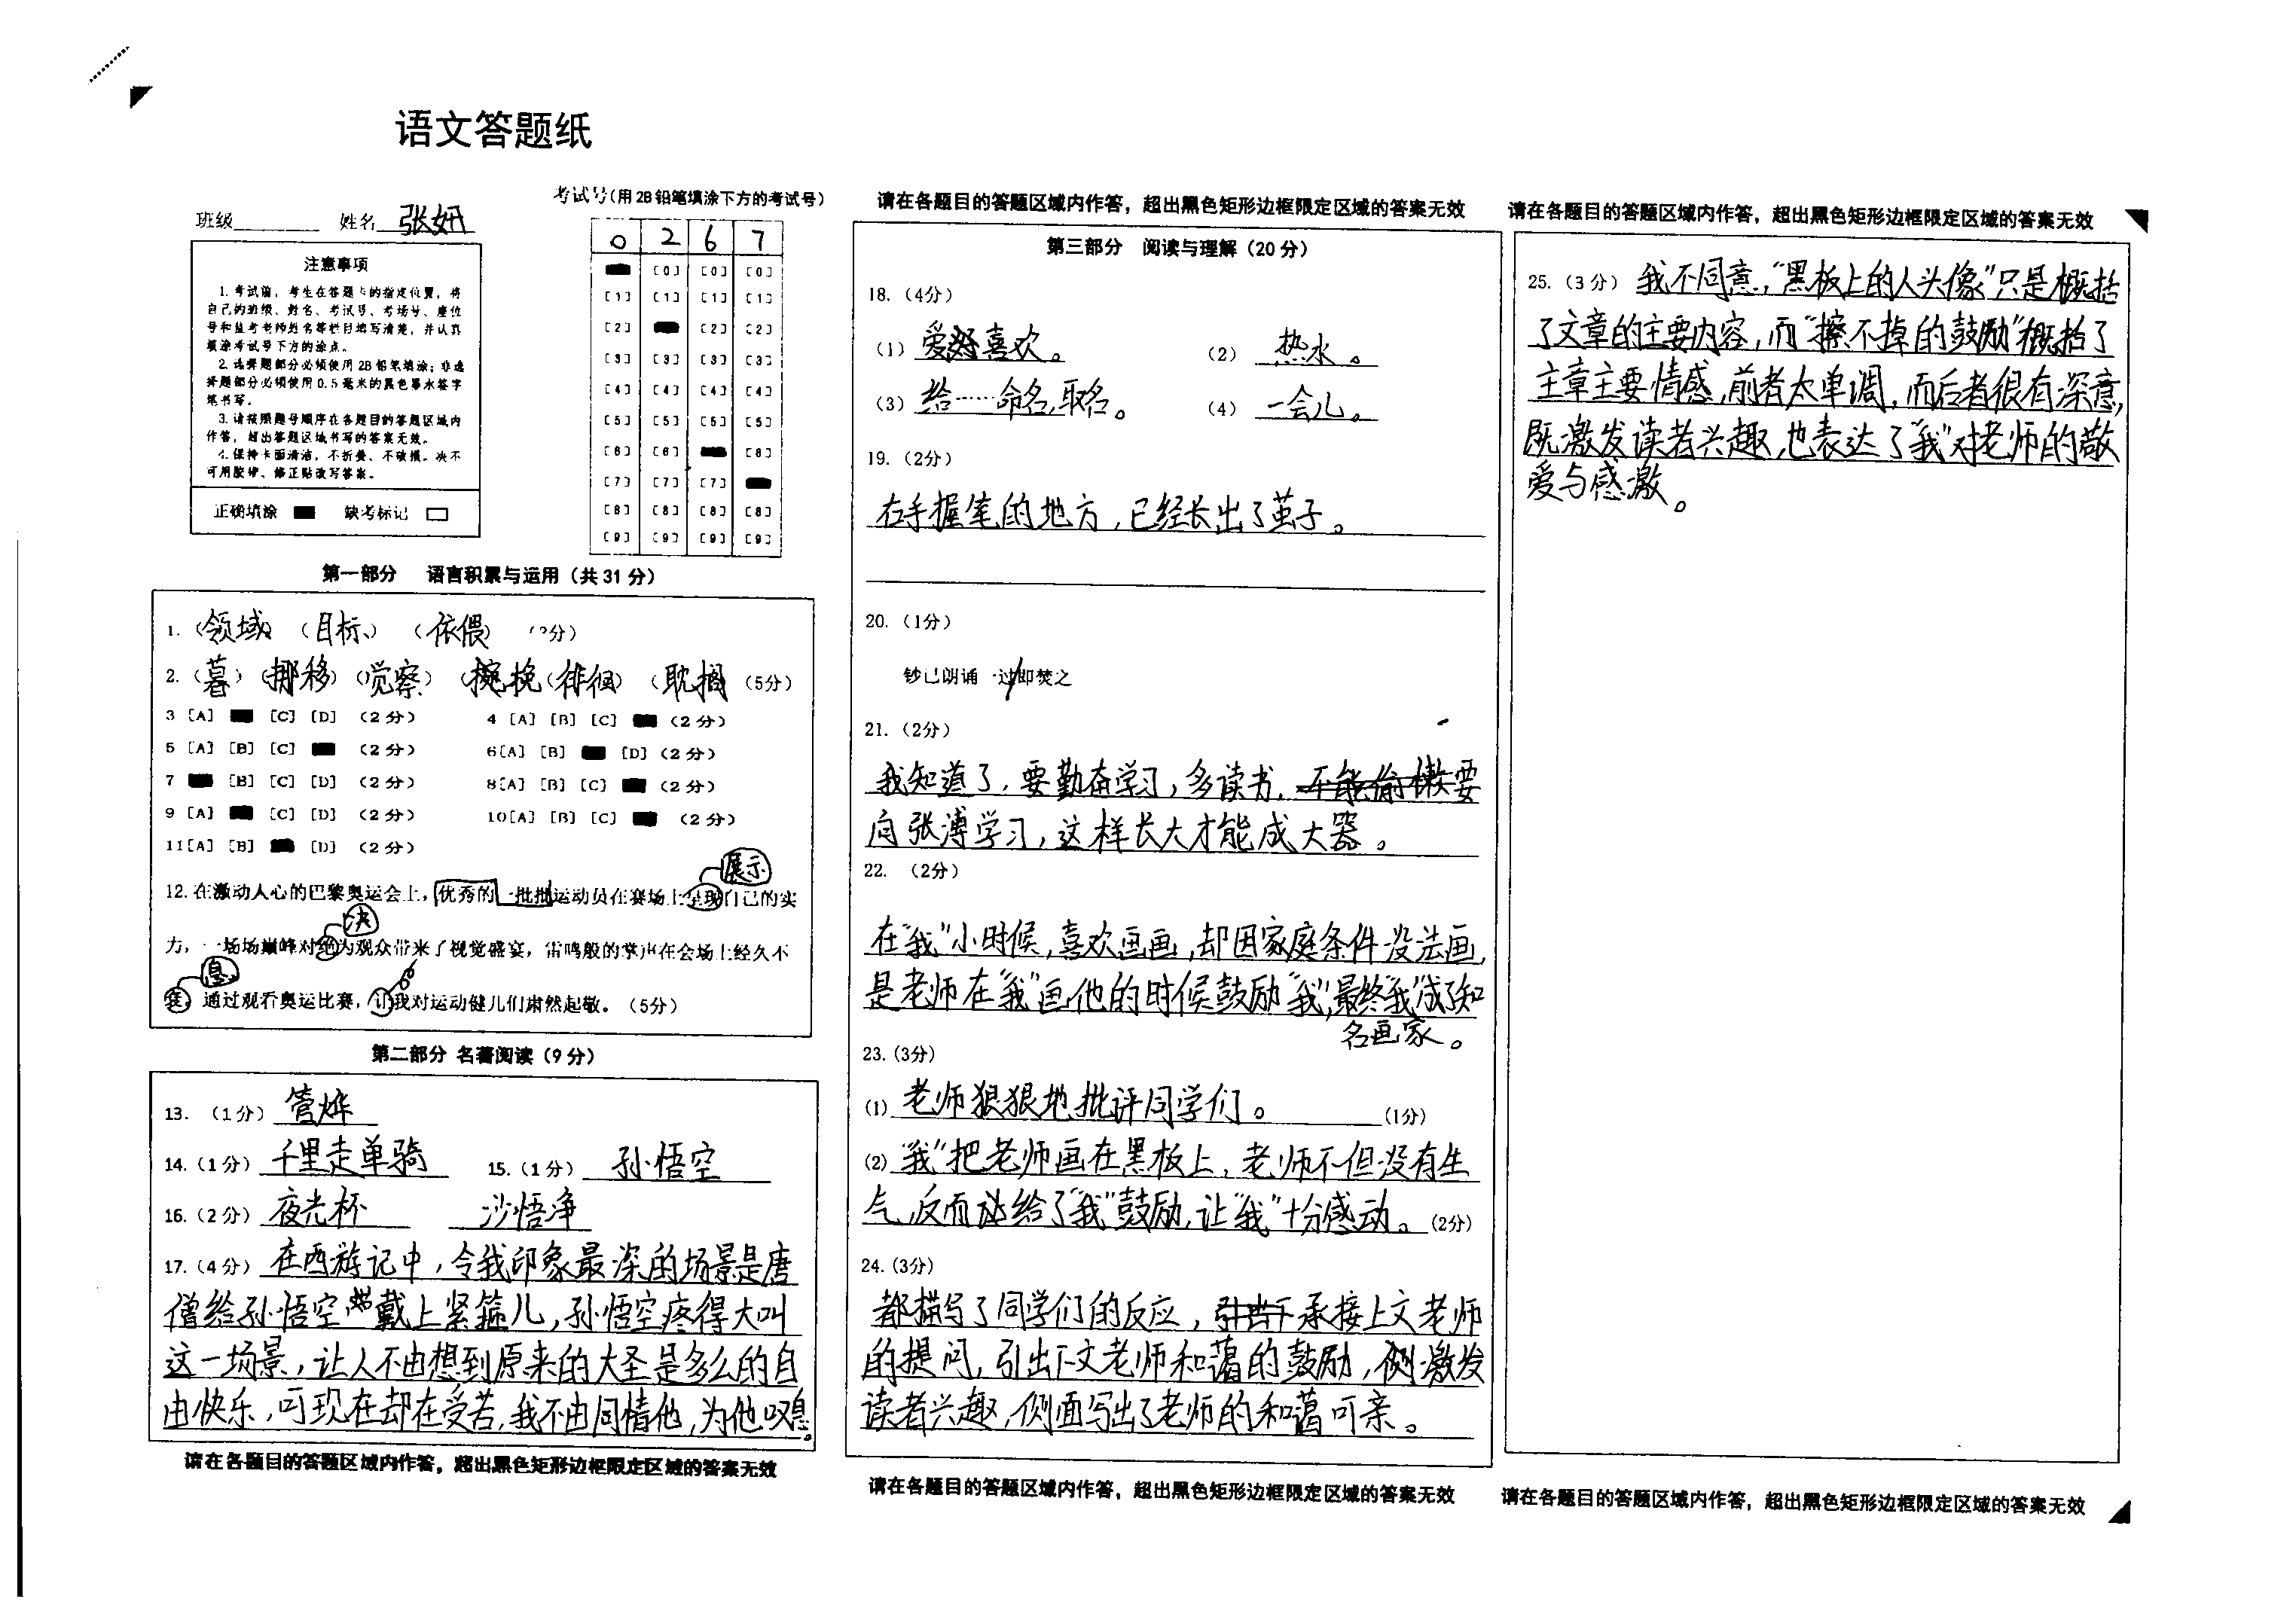 语文答题纸
班级 姓名 张妍
考试号(用2B铅笔填涂下方的考试号)
注意事项
1. 考试前，考生在答题卡的指定位置，将
自己的班级、姓名、考试号、考场号、座位
号和监考老师姓名等栏目填写清楚，并认真
填涂考试号下方的涂点。
2. 选择题部分必须使用2B铅笔填涂；非选
择题部分必须使用0.5毫米的黑色墨水签字
笔书写。
3. 请按照题号顺序在各题目的答题区域内
作答，超出答题区域书写的答案无效。
4. 保持卡面清洁，不折叠、不破损。决不
可用胶带、修正贴改写答案。
正确填涂 缺考标记
0 2 6 7
[0] [0] [0]
[1] [1] [1] [1]
[2] [2] [2]
[3] [3] [3] [3]
[4] [4] [4] [4]
[5] [5] [5] [5]
[6] [6] [6]
[7] [7] [7]
[8] [8] [8] [8]
[9] [9] [9] [9]
第一部分 语言积累与运用（共31分）
1.（领域）（目标）（依偎）
2.（暮）（挪移）（觉察）（挽）（徘徊）（耽搁）（5分）
3 [A] [C] [D] （2分） 4 [A] [B] [C] （2分）
5 [A] [B] [C] （2分） 6[A] [B] [D]（2分）
7 [B] [C] [D] （2分） 8[A] [B] [C] （2分）
9 [A] [C] [D] （2分） 10[A] [B] [C] （2分）
11[A] [B] [D] （2分）
展示
12. 在激动人心的巴黎奥运会上，优秀的一批批运动员在赛场上呈现自己的实
决
力，一场场巅峰对绝为观众带来了视觉盛宴，雷鸣般的掌声在会场上经久不
息
通过观看奥运比赛，让我对运动健儿们肃然起敬。（5分）
第二部分 名著阅读（9分）
13. （1分） 管烨
14.（1分） 千里走单骑 15.（1分） 孙悟空
16.（2分） 夜光杯 沙悟净
17.（4分） 在西游记中，令我印象最深的场景是唐
僧给孙悟空戴上紧箍儿，孙悟空疼得大叫
这一场景，让人不由想到原来的大圣是多么的自
由快乐，可现在却在受苦，我不由同情他，为他叹息。
请在各题目的答题区域内作答，超出黑色矩形边框限定区域的答案无效
请在各题目的答题区域内作答，超出黑色矩形边框限定区域的答案无效
第三部分 阅读与理解（20分）
18.（4分）
（1） 爱好喜欢。 （2） 热水。
（3） 给……命名,取名。 （4） 一会儿。
19.（2分）
右手握笔的地方，已经长出了茧子。
20.（1分）
钞已朗诵一过即焚之
21.（2分）
我知道了，要勤奋学习，多读书，不能偷懒要
向张溥学习，这样长大才能成大器。
22. （2分）
在“我”小时候，喜欢画画，却因家庭条件没法画，
是老师在“我”画他的时候鼓励“我”，最终“我”成了知
名画家。
23.（3分）
(1) 老师狠狠地批评同学们。 (1分)
(2) “我”把老师画在黑板上，老师不但没有生
气，反而给了“我”鼓励，让“我”十分感动。（2分）
24.（3分）
都描写了同学们的反应，承接上文老师
的提问，引出下文老师和蔼的鼓励，激发
读者兴趣，侧面写出了老师的和蔼可亲。
请在各题目的答题区域内作答，超出黑色矩形边框限定区域的答案无效
请在各题目的答题区域内作答，超出黑色矩形边框限定区域的答案无效
25.（3分） 我不同意，“黑板上的人头像”只是概括
了文章的主要内容，而“擦不掉的鼓励”概括了
主章主要情感，前者太单调，而后者很有深意，
既激发读者兴趣，也表达了“我”对老师的敬
爱与感激。
请在各题目的答题区域内作答，超出黑色矩形边框限定区域的答案无效